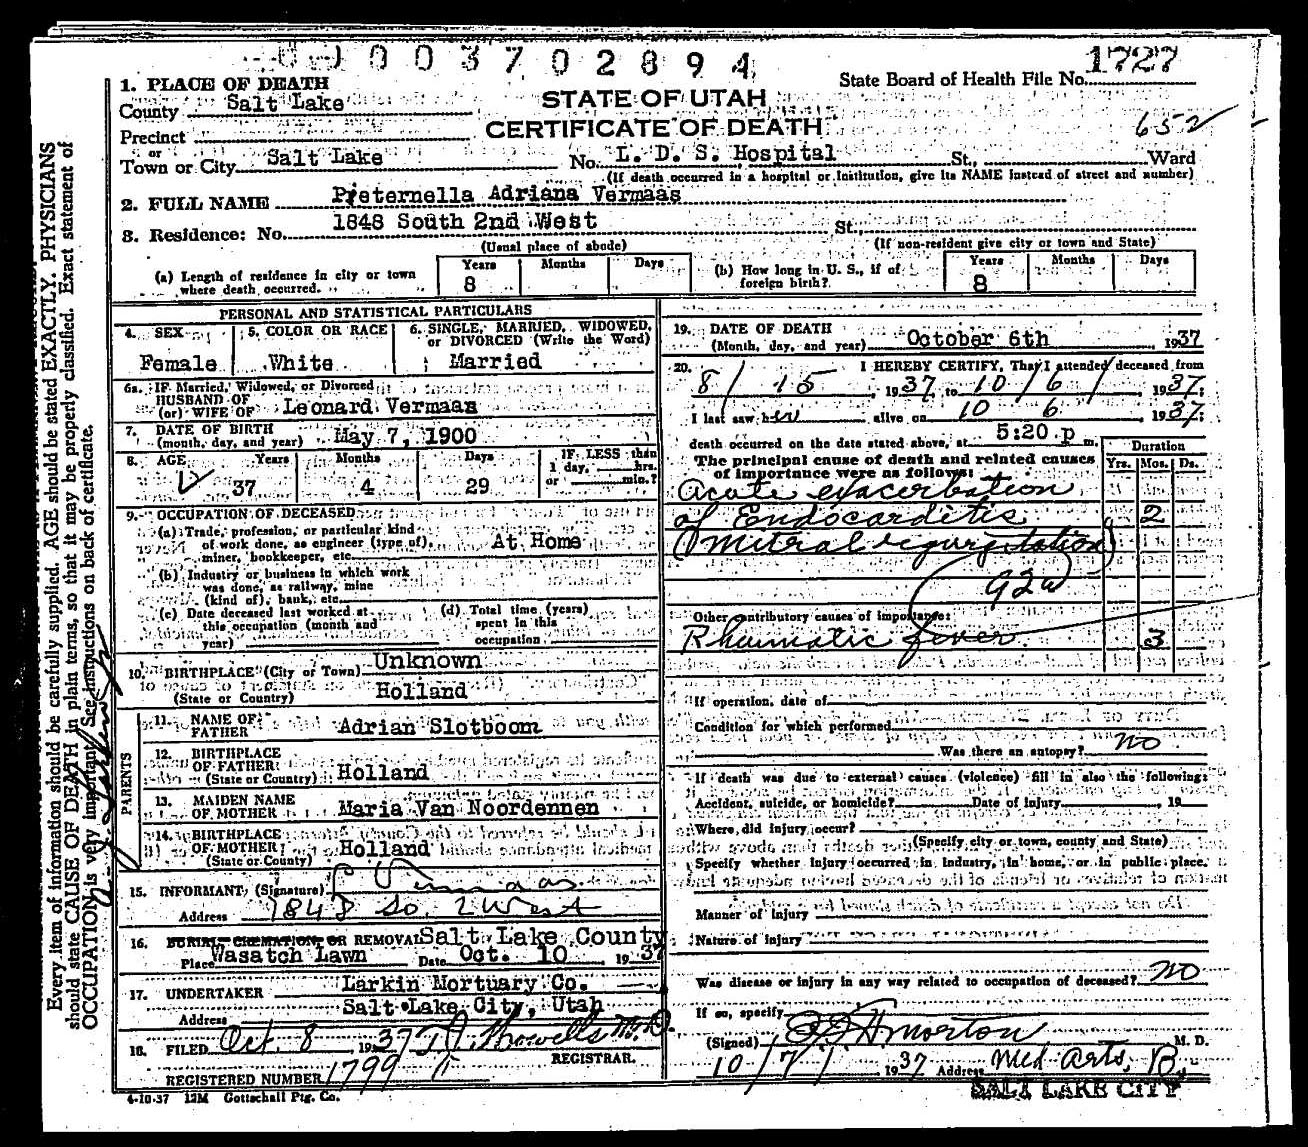 003702894
1727
State Board of Health File No.
1. PLACE OF DEATH
County Salt Lake
STATE OF UTAH
CERTIFICATE OF DEATH
652
Precinct
or
Town or City Salt Lake No. L. D. S. Hospital St., Ward
(If death occurred in a hospital or institution, give its NAME instead of street and number)
2. FULL NAME Pieternella Adriana Vermaas
3. Residence: No. 1848 South 2nd West St.,
(Usual place of abode) (If non-resident give city or town and State)
(a) Length of residence in city or town where death occurred. Years 8 Months Days
(b) How long in U. S., if of foreign birth? Years 8 Months Days
PERSONAL AND STATISTICAL PARTICULARS
4. SEX Female
5. COLOR OR RACE White
6. SINGLE, MARRIED, WIDOWED, or DIVORCED (Write the Word) Married
6a. IF Married, Widowed, or Divorced
HUSBAND OF
(or) WIFE OF Leonard Vermaas
7. DATE OF BIRTH
(month, day, and year) May 7, 1900
8. AGE Years 37 Months 4 Days 29
IF LESS than 1 day, hrs. or min.?
9. OCCUPATION OF DECEASED
(a) Trade, profession, or particular kind of work done, as engineer (type of), miner, bookkeeper, etc. At Home
(b) Industry or business in which work was done, as railway, mine (kind of), bank, etc.
(c) Date deceased last worked at this occupation (month and year)
(d) Total time (years) spent in this occupation
10. BIRTHPLACE (City or Town) Unknown
(State or Country) Holland
PARENTS
11. NAME OF FATHER Adrian Slotboom
12. BIRTHPLACE OF FATHER (State or Country) Holland
13. MAIDEN NAME OF MOTHER Maria Van Noordennen
14. BIRTHPLACE OF MOTHER (State or County) Holland
15. INFORMANT (Signature) L Vermaas
Address 1848 So. 2 West
16. BURIAL CREMATION, OR REMOVAL Salt Lake County
Place Wasatch Lawn Date Oct. 10 1937
17. UNDERTAKER Larkin Mortuary Co.
Address Salt Lake City, Utah
18. FILED Oct. 8 1937 T. J. Howells M.D.
REGISTRAR.
REGISTERED NUMBER 1799
4-10-37 12M Gottschall Ptg. Co.
19. DATE OF DEATH
(Month, day, and year) October 6th 1937
20. I HEREBY CERTIFY, That I attended deceased from
8/15, 1937, to 10/6/, 1937;
I last saw her alive on 10 6 1937;
death occurred on the date stated above, at 5:20 p m.
The principal cause of death and related causes of importance were as follows:
Duration
Yrs. Mos. Ds.
Acute exacerbation
of Endocarditis 2
(Mitral regurgitation)
92a
Other contributory causes of importance:
Rheumatic fever. 3
If operation, date of
Condition for which performed
Was there an autopsy? no
If death was due to external causes (violence) fill in also the following:
Accident, suicide, or homicide? Date of injury, 19
Where did injury occur?
(Specify city or town, county and State)
Specify whether injury occurred in industry, in home, or in public place.
Manner of injury
Nature of injury
Was disease or injury in any way related to occupation of deceased? no
If so, specify
(Signed) M. D.
10/7/1937 Address Med Arts, B.
SALT LAKE CITY
Every item of information should be carefully supplied. AGE should be stated EXACTLY. PHYSICIANS
should state CAUSE OF DEATH in plain terms, so that it may be properly classified. Exact statement of
OCCUPATION is very important. See instructions on back of certificate.